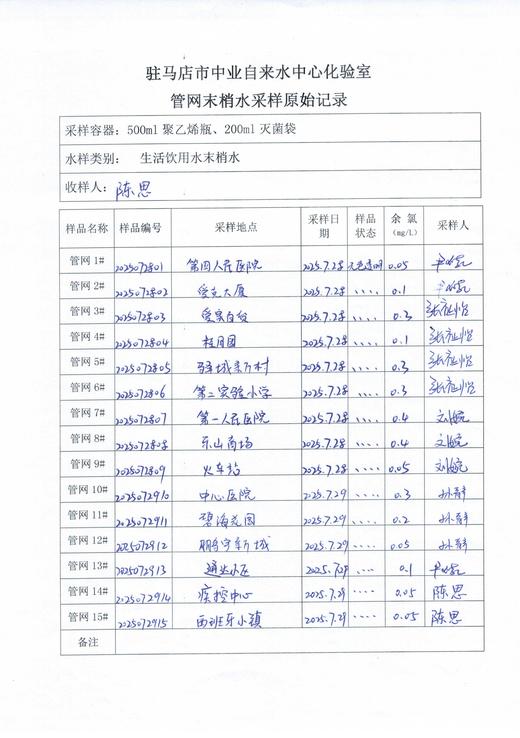 驻马店市中业自来水中心化验室
管网末梢水采样原始记录
采样容器：500ml 聚乙烯瓶、200ml 灭菌袋
水样类别： 生活饮用水末梢水
收样人：陈思
样品名称 样品编号 采样地点 采样日期 样品状态 余氯（mg/L） 采样人
管网 1# 2025072801 第四人民医院 2025.7.28 无色透明 0.05
管网 2# 2025072802 爱克大厦 2025.7.28 、、、、 0.1
管网 3# 2025072803 2025.7.28 、、、、 0.3
管网 4# 2025072804 桂月园 2025.7.28 、、、、 0.1
管网 5# 2025072805 驿城新村 2025.7.28 、、、、 0.3
管网 6# 2025072806 第二实验小学 2025.7.28 、、、、 0.3
管网 7# 2025072807 第一人民医院 2025.7.28 、、、、 0.4
管网 8# 2025072808 乐山商场 2025.7.28 、、、、 0.4
管网 9# 2025072809 火车站 2025.7.28 、、、、 0.05
管网 10# 2025072910 中心医院 2025.7.29 、、、、 0.3
管网 11# 2025072911 碧海花园 2025.7.29 、、、、 0.2
管网 12# 2025072912 鹏宇新城 2025.7.29 、、、、 0.05
管网 13# 2025072913 通达小区 2025.7.29 、、、、 0.1
管网 14# 2025072914 疾控中心 2025.7.29 、、、、 0.05 陈思
管网 15# 2025072915 西班牙小镇 2025.7.29 、、、、 0.05 陈思
备注